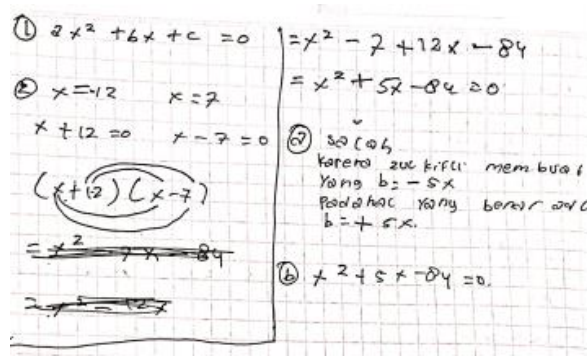 ① ax² + bx + c = 0
② x = -12    x = 7
x + 12 = 0    x - 7 = 0
(x+12)(x-7)
= x² - 7x - 84
= x² - 12x
= x² - 7 + 12x - 84
= x² + 5x - 84 = 0
ⓐ salah
karena zulkifli membuat
Yang b = - 5x
Padahal Yang benar
b = + 5x.
ⓑ x² + 5x - 84 = 0.